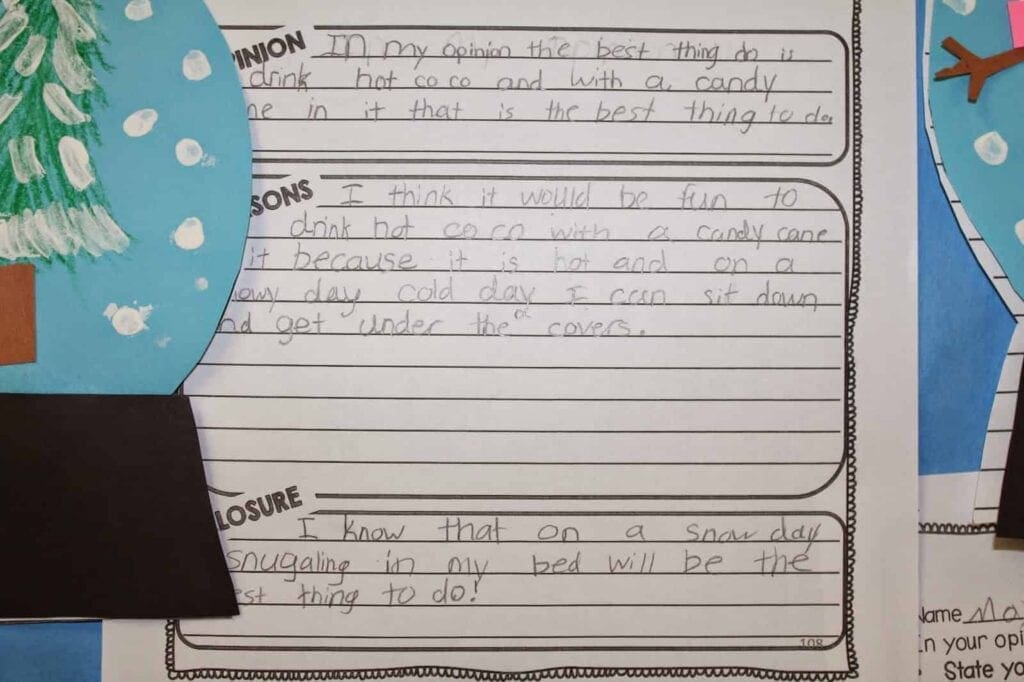 PINION In my opinion the best thing do is
drink hot co co and with a candy
ne in it that is the best thing to do
SONS I think it would be fun to
drink hot co co with a candy cane
it because it is hot and on a
owy day cold day I can sit down
nd get under the covers.
LOSURE
I know that on a snow day
snugaling in my bed will be the
est thing to do!
108
Name Ma
In your opi
State yo